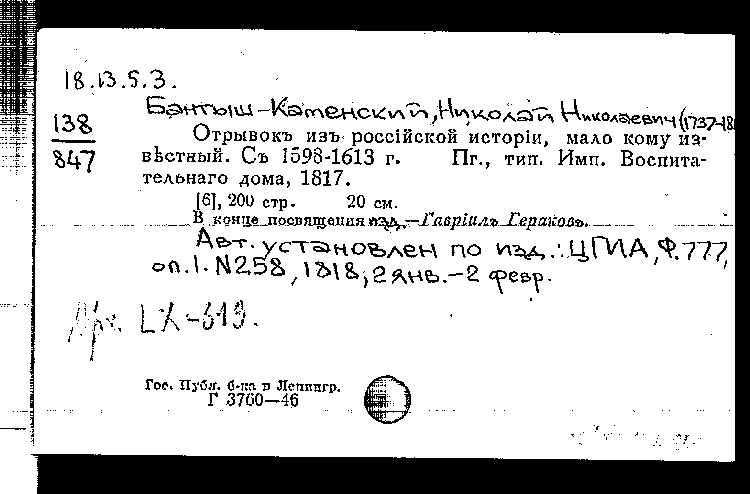 18.13.5.3.
Бантыш-Каменский, Николай Николаевич (1737-18
138
847
Отрывокъ изъ россійской исторіи, мало кому из-
вѣстный. Съ 1598-1613 г. Пг., тип. Имп. Воспита-
тельнаго дома, 1817.
[6], 200 стр. 20 см.
В конце посвящения изд.—Гавріилъ Гераковъ.
Авт. установлен по изд.: ЦГИА, Ф. 777,
оп.1. N258, 1818, 2 янв.—2 февр.
LX-613.
Гос. Публ. б-ка в Ленингр.
Г 3760—46